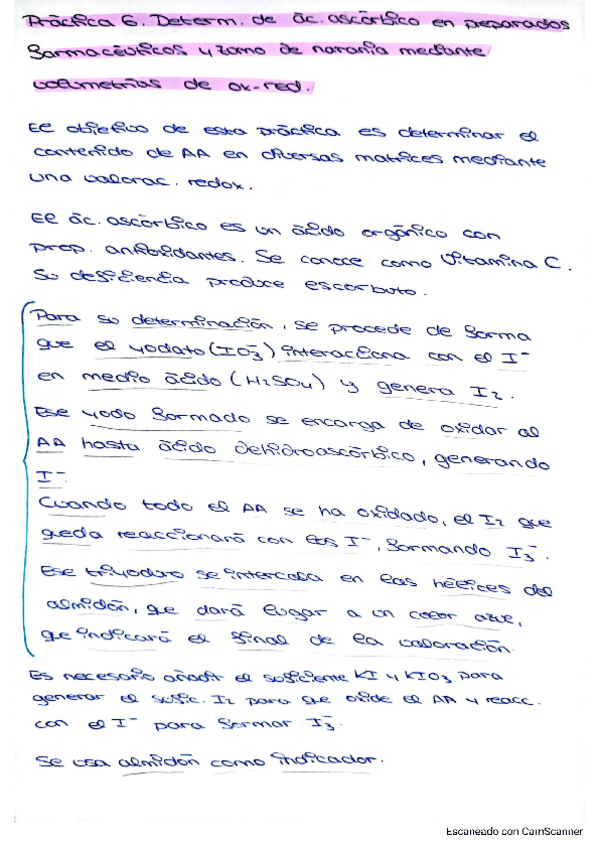 Práctica 6. Determ. de ác. ascórbico en preparados
farmacéuticos y zomo de naranja mediante
volumetrías de ox-red.
El objetivo de esta práctica es determinar el
contenido de AA en diversas matrices mediante
una valorac. redox.
El ác. ascórbico es un ácido orgánico con
prop. antioxidantes. Se conoce como Vitamina C.
Su deficiencia produce escorbuto.
Para su determinación, se procede de forma
que el yodato (IO₃⁻) interacciona con el I⁻
en medio ácido (H₂SO₄) y genera I₂.
Ese yodo formado se encarga de oxidar al
AA hasta ácido dehidroascórbico, generando
I⁻.
Cuando todo el AA se ha oxidado, el I₂ que
queda reaccionará con los I⁻, formando I₃⁻.
Ese triyoduro se intercala en las hélices del
almidón, que dará lugar a un color azul,
que indicará el final de la valoración.
Es necesario añadir el suficiente KI y KIO₃ para
generar el sufic. I₂ para que oxide el AA y reacc.
con el I⁻ para formar I₃⁻.
Se usa almidón como indicador.
Escaneado con CamScanner